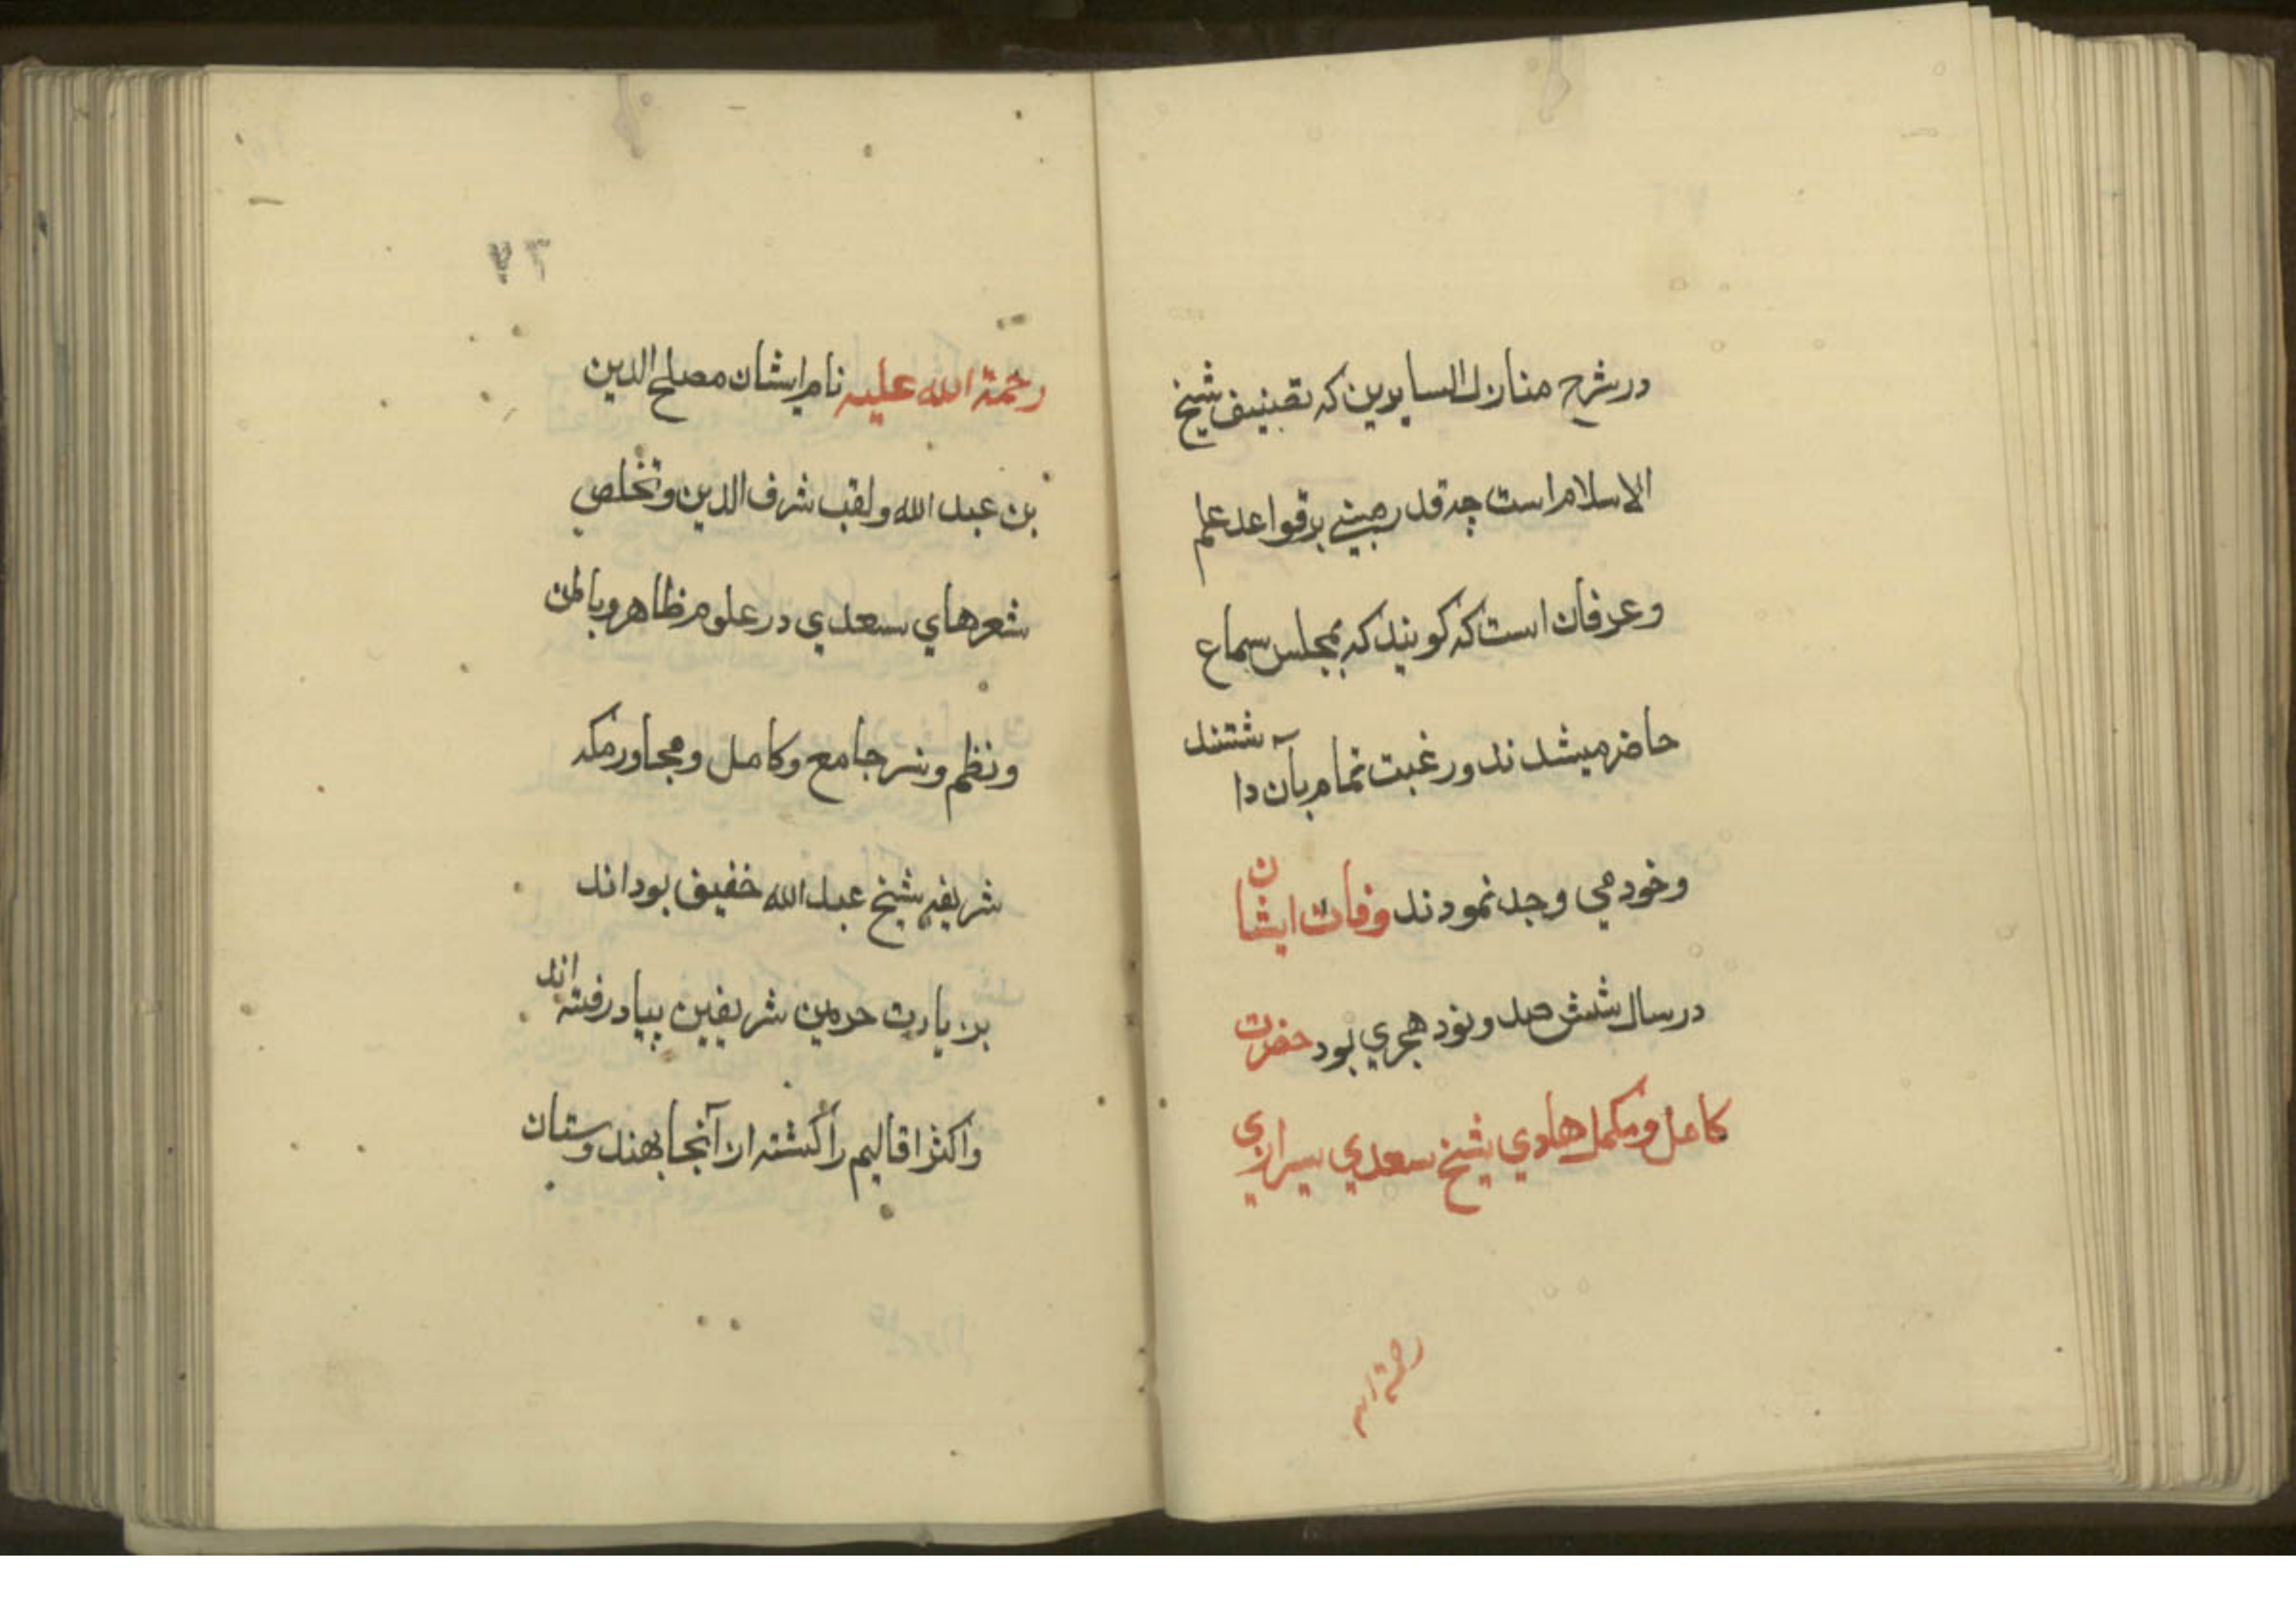 در شرح منازل السایرین که تصنیف شیخ
الاسلام است چه قدر مبنی بر قواعد علم
و عرفان است که کویند که بمجلس سماع
حاضر میشدند و رغبت تمام بآن داشتند
و خود می وجد نمودند وفات ایشان
در سال شش صد و نود هجري بود حضرت
کامل و مکمل هادي شیخ سعدي سیرازي
رحمة الله
٧٣
رحمة الله علیه نام ایشان مصلح الدین
بن عبد الله و لقب شرف الدین و تخلص
شعرهاي سعدي در علوم ظاهر و باطن
و نظم و نسر جامع و کامل و مجاور مکه
شریفه شیخ عبد الله خفیف بود اند
بزیارت حرمین شریفین پیاد رفته اند
و اکثر اقالیم را کشته از آنجا بهندوستان